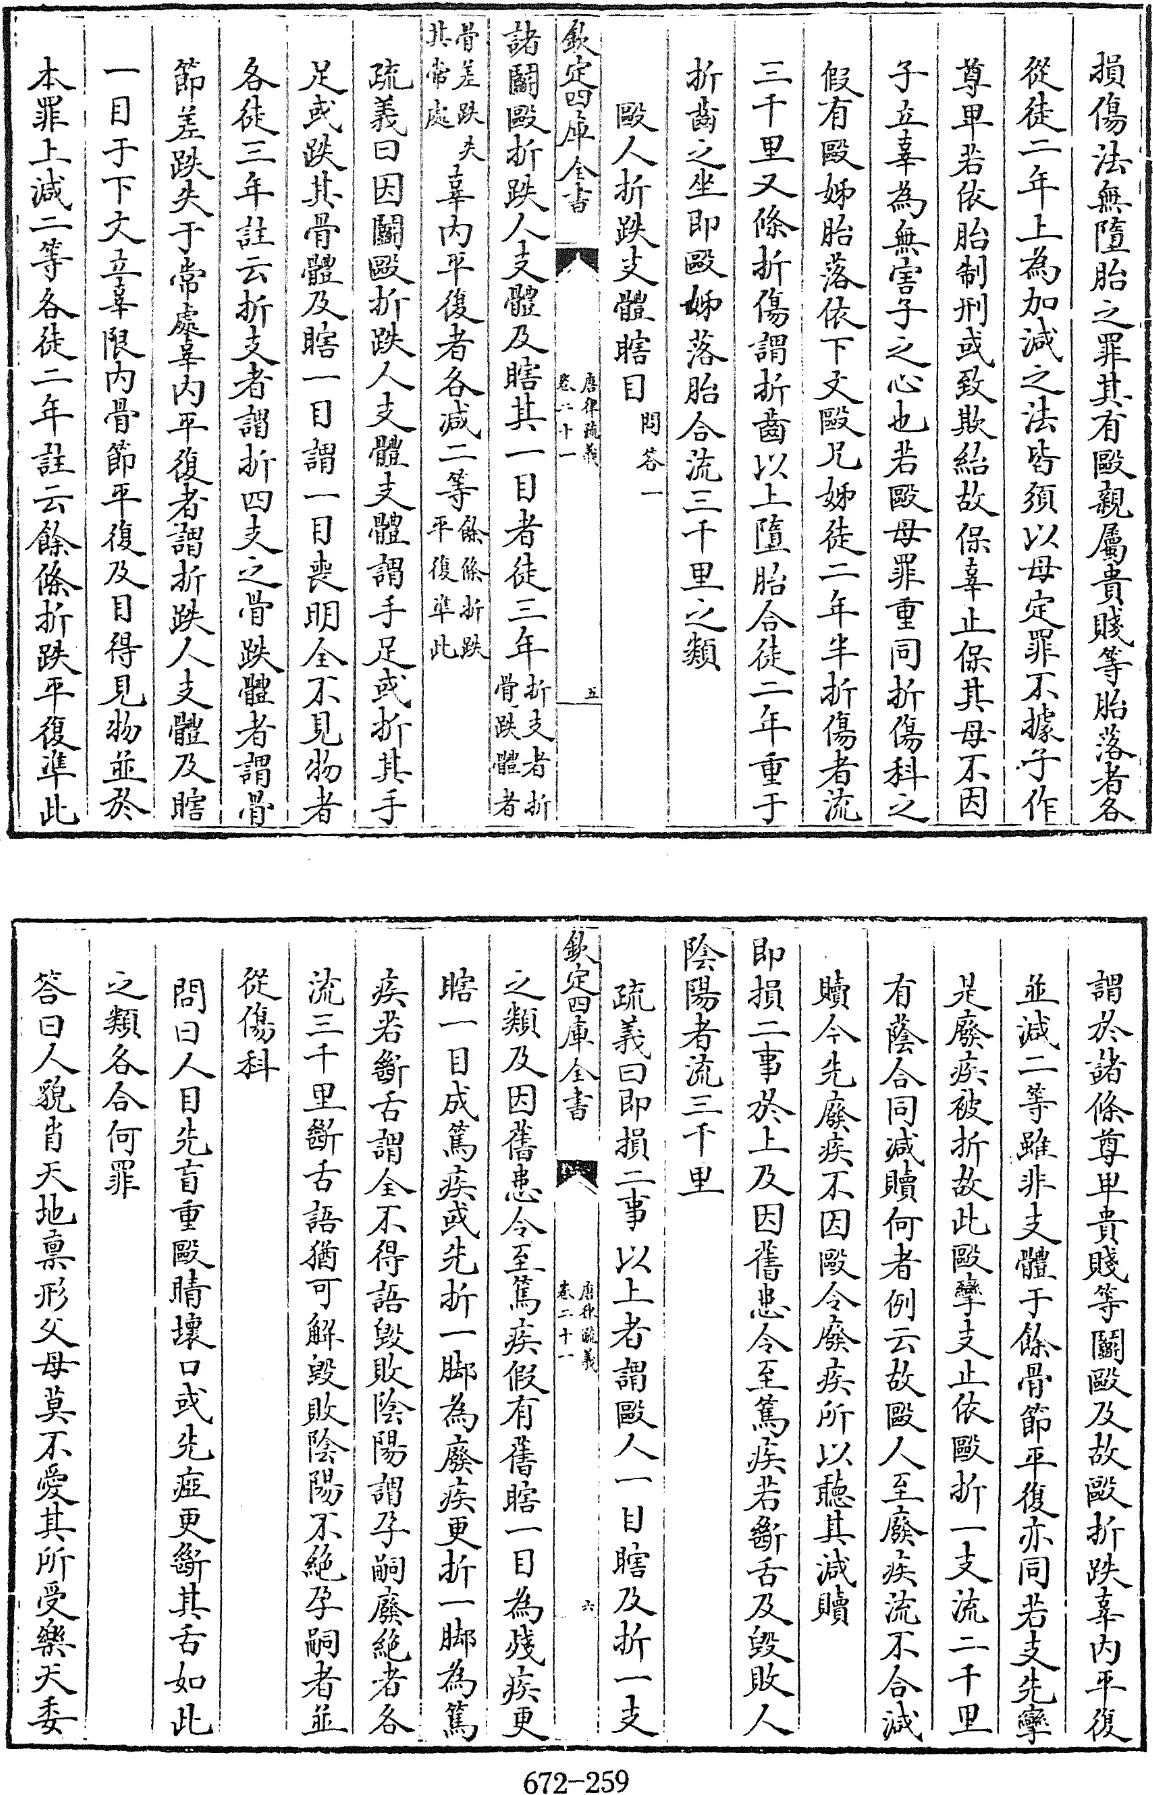 損傷法無墮胎之罪其有毆親屬貴賤等胎落者各
從徒二年上為加減之法皆須以母定罪不據子作
尊卑若依胎制刑或致欺紿故保辜止保其母不因
子立辜為無害子之心也若毆母罪重同折傷科之
假有毆姊胎落依下文毆兄姊徒二年半折傷者流
三千里又條折傷謂折齒以上墮胎合徒二年重于
折齒之坐即毆姊落胎合流三千里之類
毆人折跌支體瞎目 問答一
欽定四庫全書 唐律疏義 卷二十一 五
諸鬭毆折跌人支體及瞎其一目者徒三年 折支者折骨跌體者
骨差跌失其常處 辜內平復者各減二等 餘條折跌平復準此
疏義曰因鬭毆折跌人支體支體謂手足或折其手
足或跌其骨體及瞎一目謂一目喪明全不見物者
各徒三年註云折支者謂折四支之骨跌體者謂骨
節差跌失于常處辜內平復者謂折跌人支體及瞎
一目于下文立辜限內骨節平復及目得見物並於
本罪上減二等各徒二年註云餘條折跌平復準此
謂於諸條尊卑貴賤等鬭毆及故毆折跌辜內平復
並減二等雖非支體于餘骨節平復亦同若支先攣
是廢疾被折故此毆攣支止依毆折一支流二千里
有蔭合同減贖何者例云故毆人至廢疾流不合減
贖今先廢疾不因毆令廢疾所以聽其減贖
即損二事於上及因舊患令至篤疾若斷舌及毀敗人
陰陽者流三千里
疏義曰即損二事以上者謂毆人一目瞎及折一支
欽定四庫全書 唐律疏義 卷二十一 六
之類及因舊患令至篤疾假有舊瞎一目為殘疾更
瞎一目成篤疾或先折一脚為廢疾更折一脚為篤
疾若斷舌謂全不得語毀敗陰陽謂孕嗣廢絕者各
流三千里斷舌語猶可解毀敗陰陽不絕孕嗣者並
從傷科
問曰人目先盲重毆睛壞口或先瘂更斷其舌如此
之類各合何罪
答曰人貌肖天地稟形父母莫不愛其所受樂天委
672-259